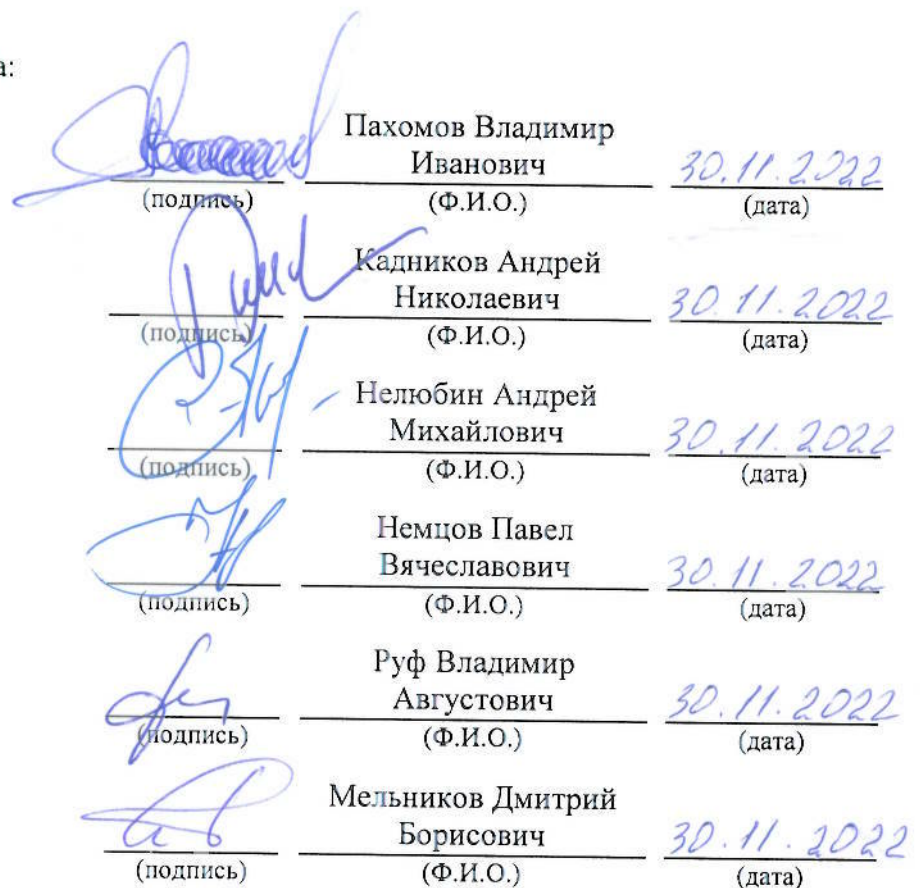 а:
Пахомов Владимир
Иванович 30.11.2022
(подпись) (Ф.И.О.) (дата)
Кадников Андрей
Николаевич 30.11.2022
(подпись) (Ф.И.О.) (дата)
Нелюбин Андрей
Михайлович 30.11.2022
(подпись) (Ф.И.О.) (дата)
Немцов Павел
Вячеславович 30.11.2022
(подпись) (Ф.И.О.) (дата)
Руф Владимир
Августович 30.11.2022
(подпись) (Ф.И.О.) (дата)
Мельников Дмитрий
Борисович 30.11.2022
(подпись) (Ф.И.О.) (дата)